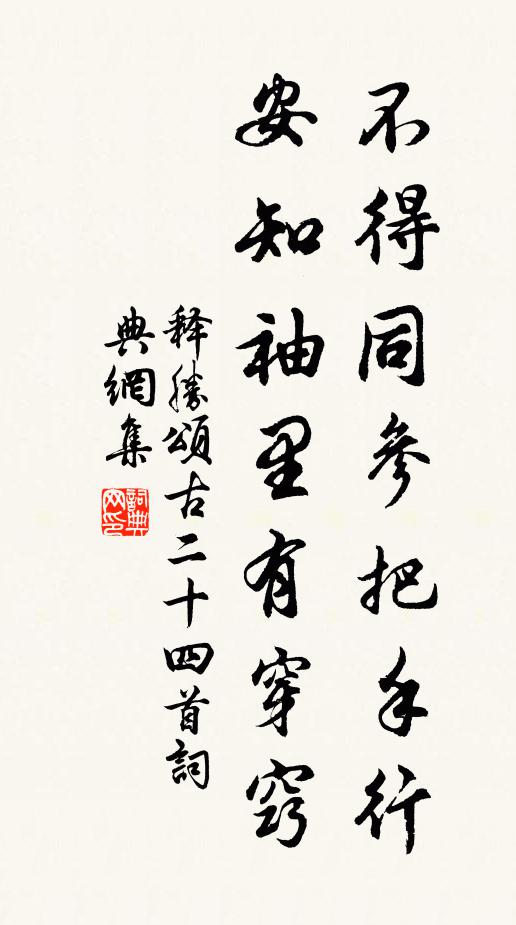 不得同參把手行
安知袖里有穿窬
释勝頌古二十四首詞
典網集
詞典网印